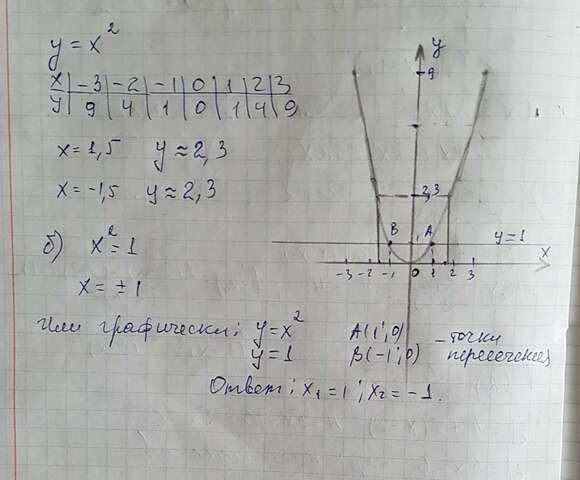 y = x²
x | -3 | -2 | -1 | 0 | 1 | 2 | 3
y | 9 | 4 | 1 | 0 | 1 | 4 | 9
x = 1,5 y ≈ 2,3
x = -1,5 y ≈ 2,3
б) x² = 1
x = ± 1
Или графически: y = x²
y = 1
A(1; 0)
B(-1; 0)
- точки
пересечения
Ответ: x₁ = 1; x₂ = -1.
y
9
2,3
B
A
1
y = 1
x
-3 -2 -1 0 1 2 3